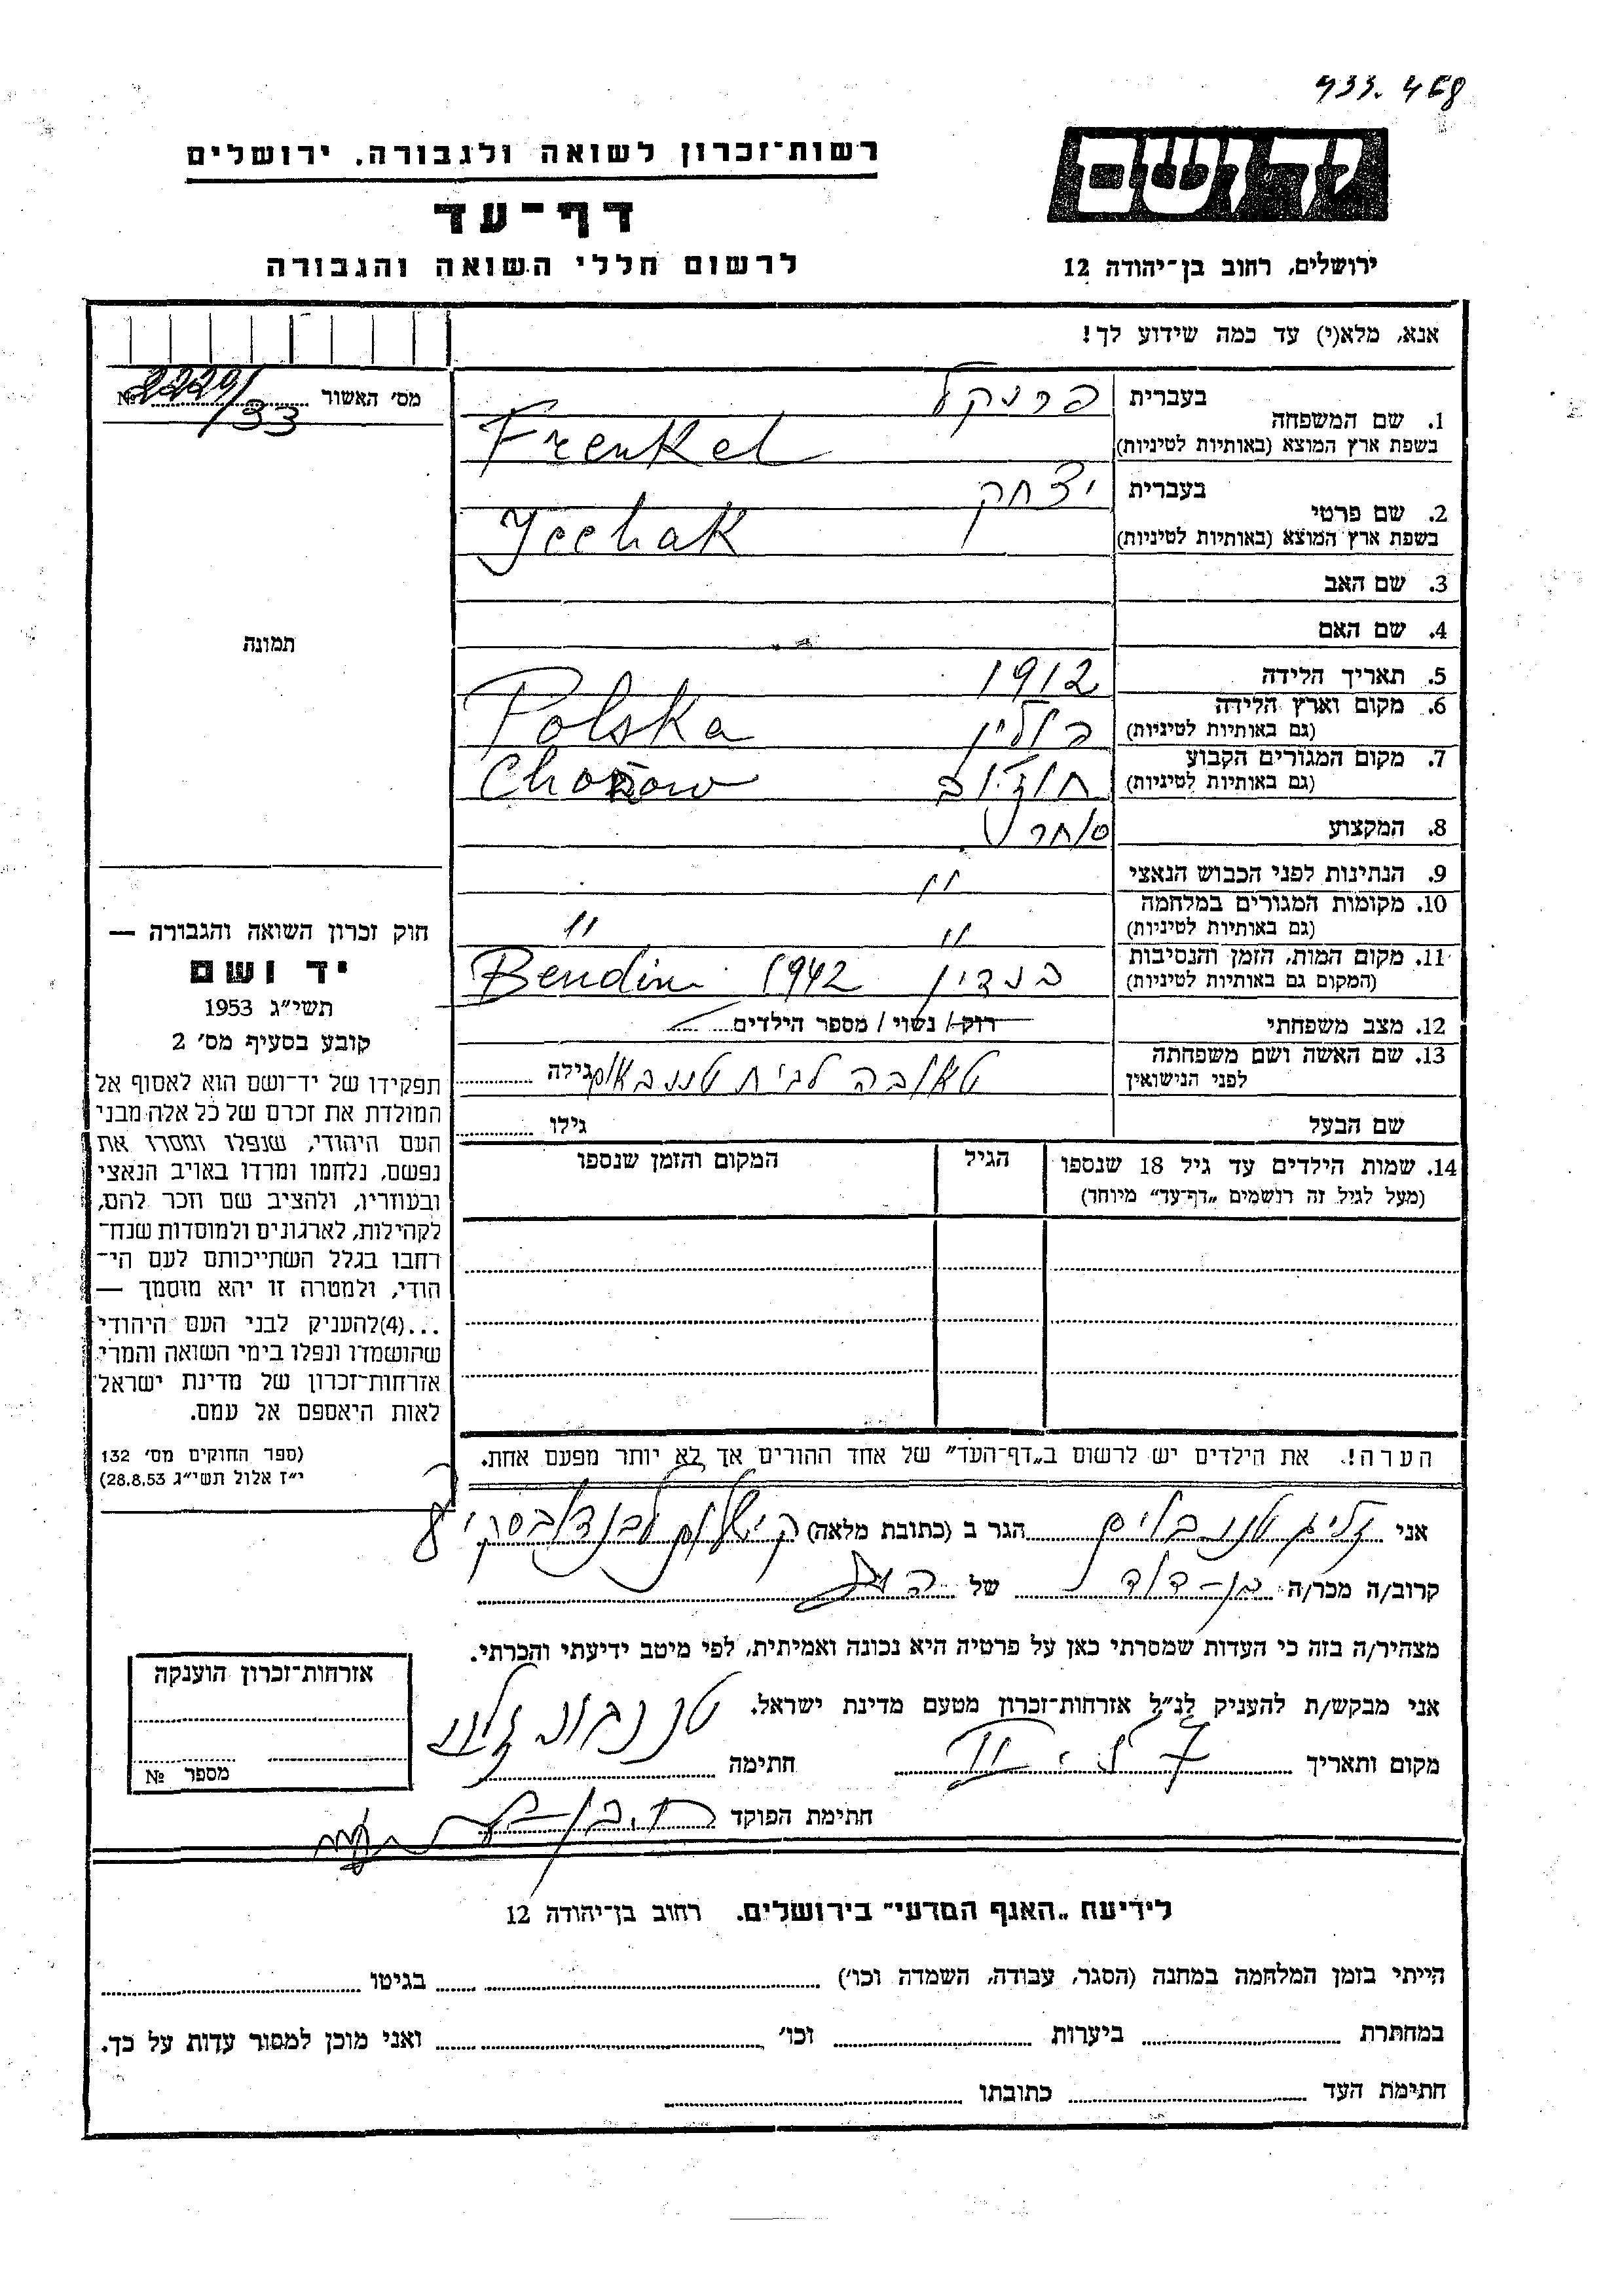 933.468
רשות־זכרון לשואה ולגבורה, ירושלים
יד ושם
דף־עד
לרשום חללי השואה והגבורה
ירושלים, רחוב בן־יהודה 12
אנא, מלא(י) עד כמה שידוע לך!
מס׳ האשור № 2229/33
1. שם המשפחה
בעברית פרנקל
בשפת ארץ המוצא (באותיות לטיניות) Frenkel
2. שם פרטי
בעברית יצחק
בשפת ארץ המוצא (באותיות לטיניות) Jcchak
3. שם האב
4. שם האם
תמונה
5. תאריך הלידה 1912
6. מקום וארץ הלידה
(גם באותיות לטיניות) פולין Polska
7. מקום המגורים הקבוע
(גם באותיות לטיניות)
8. המקצוע סוחר
9. הנתינות לפני הכבוש הנאצי 〃
10. מקומות המגורים במלחמה
(גם באותיות לטיניות) 〃 〃
11. מקום המות, הזמן והנסיבות
(המקום גם באותיות לטיניות) בנדין 1942 Bendin
12. מצב משפחתי רוק/ נשוי / מספר הילדים
13. שם האשה ושם משפחתה
לפני הנישואין טאובה לבית גילה
שם הבעל גילו
14. שמות הילדים עד גיל 18 שנספו
(מעל לגיל זה רושמים „דף־עד״ מיוחד)
הגיל
המקום והזמן שנספו
חוק זכרון השואה והגבורה —
יד ושם
תשי״ג 1953
קובע בסעיף מס׳ 2
תפקידו של יד־ושם הוא לאסוף אל
המולדת את זכרם של כל אלה מבני
העם היהודי, שנפלו ומסרו את
נפשם, נלחמו ומרדו באויב הנאצי
ובעוזריו, ולהציב שם וזכר להם,
לקהילות, לארגונים ולמוסדות שנח־
רחבו בגלל השתייכותם לעם הי־
הודי, ולמטרה זו יהא מוסמך —
...(4)להעניק לבני העם היהודי
שהושמדו ונפלו בימי השואה והמרי
אזרחות־זכרון של מדינת ישראל
לאות היאספם אל עמם.
(ספר החוקים מס׳ 132
י״ז אלול תשי״ג 28.8.53)
הערה!. את הילדים יש לרשום ב„דף־העד״ של אחד ההורים אך לא יותר מפעם אחת.
אני זליג טננבוים הגר ב (כתובת מלאה)
קרוב/ה מכר/ה בן־דוד של
מצהיר/ה בזה כי העדות שמסרתי כאן על פרטיה היא נכונה ואמיתית, לפי מיטב ידיעתי והכרתי.
אני מבקש/ת להעניק לנ״ל אזרחות־זכרון מטעם מדינת ישראל.
מקום ותאריך חתימה
חתימת הפוקד
אזרחות־זכרון הוענקה
מספר №
לידיעת „האגף המדעי״ בירושלים. רחוב בן־יהודה 12
הייתי בזמן המלחמה במחנה (הסגר, עבודה, השמדה וכו׳) בגיטו
במחתרת ביערות וכו׳ ואני מוכן למסור עדות על כך.
חתימת העד כתובתו